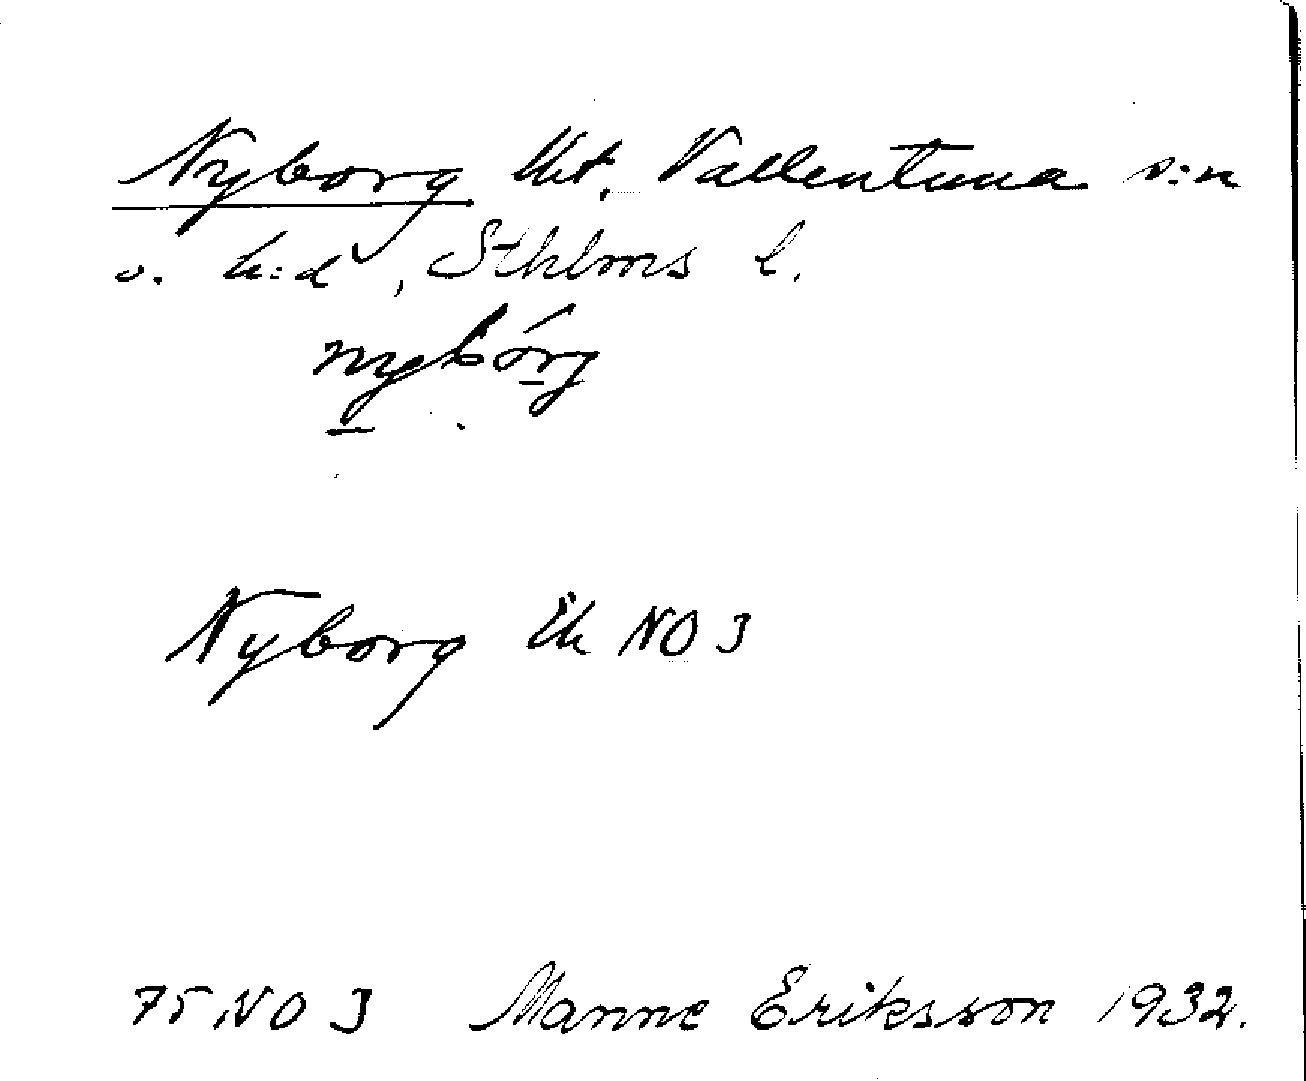 Nyborg lht. Vallentuna s:n
o. h:d, Sthlms l.
nybórg
Nyborg Ek NO J
75 NO J Manne Eriksson 1932.